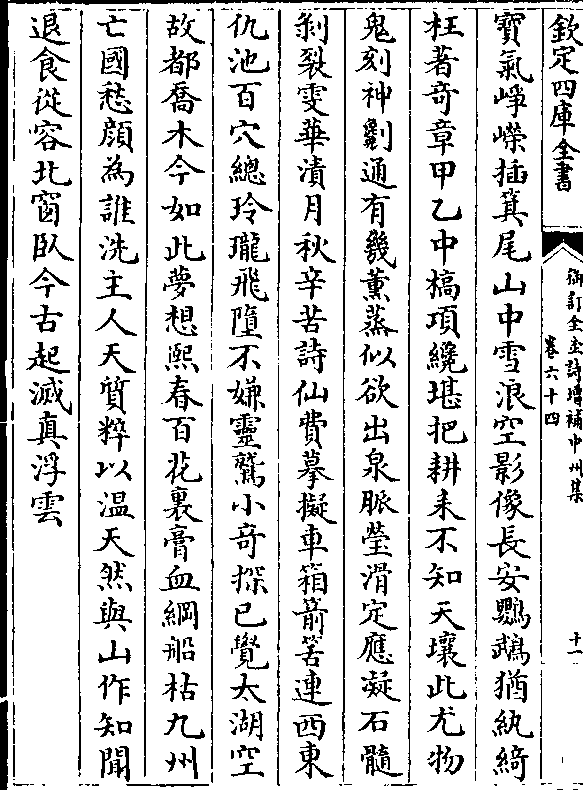 欽定四庫全書
御訂全金詩增補中州集
卷六十四
十一
寶氣崢嶸插箕尾山中雪浪空影像長安鸚鵡猶紈綺
枉著奇章甲乙中槁項纔堪把耕耒不知天壤此尤物
鬼刻神劖通有幾薰蒸似欲出泉脈瑩滑定應凝石髓
剝裂雯華漬月秋辛苦詩仙費摹擬車箱箭筈連西東
仇池百穴總玲瓏飛墮不嫌靈鷲小奇探已覺太湖空
故都喬木今如此夢想熙春百花裏膏血綱船枯九州
亡國愁顏為誰洗主人天質粹以溫天然與山作知聞
退食從容北窗臥今古起滅真浮雲